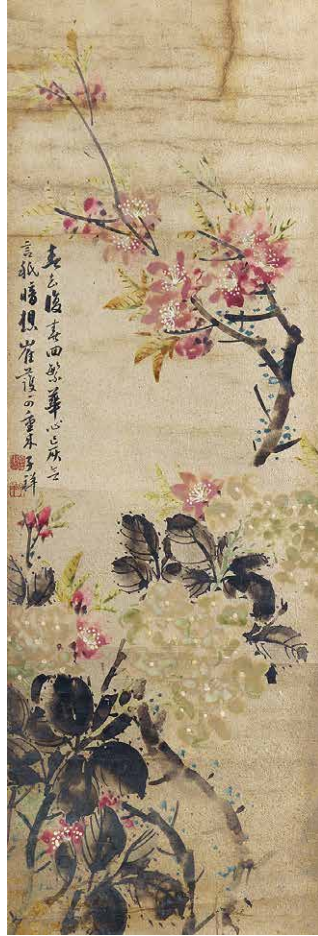 春去復春回繁華心已灰无
言祇暗想崔護可重來 子祥